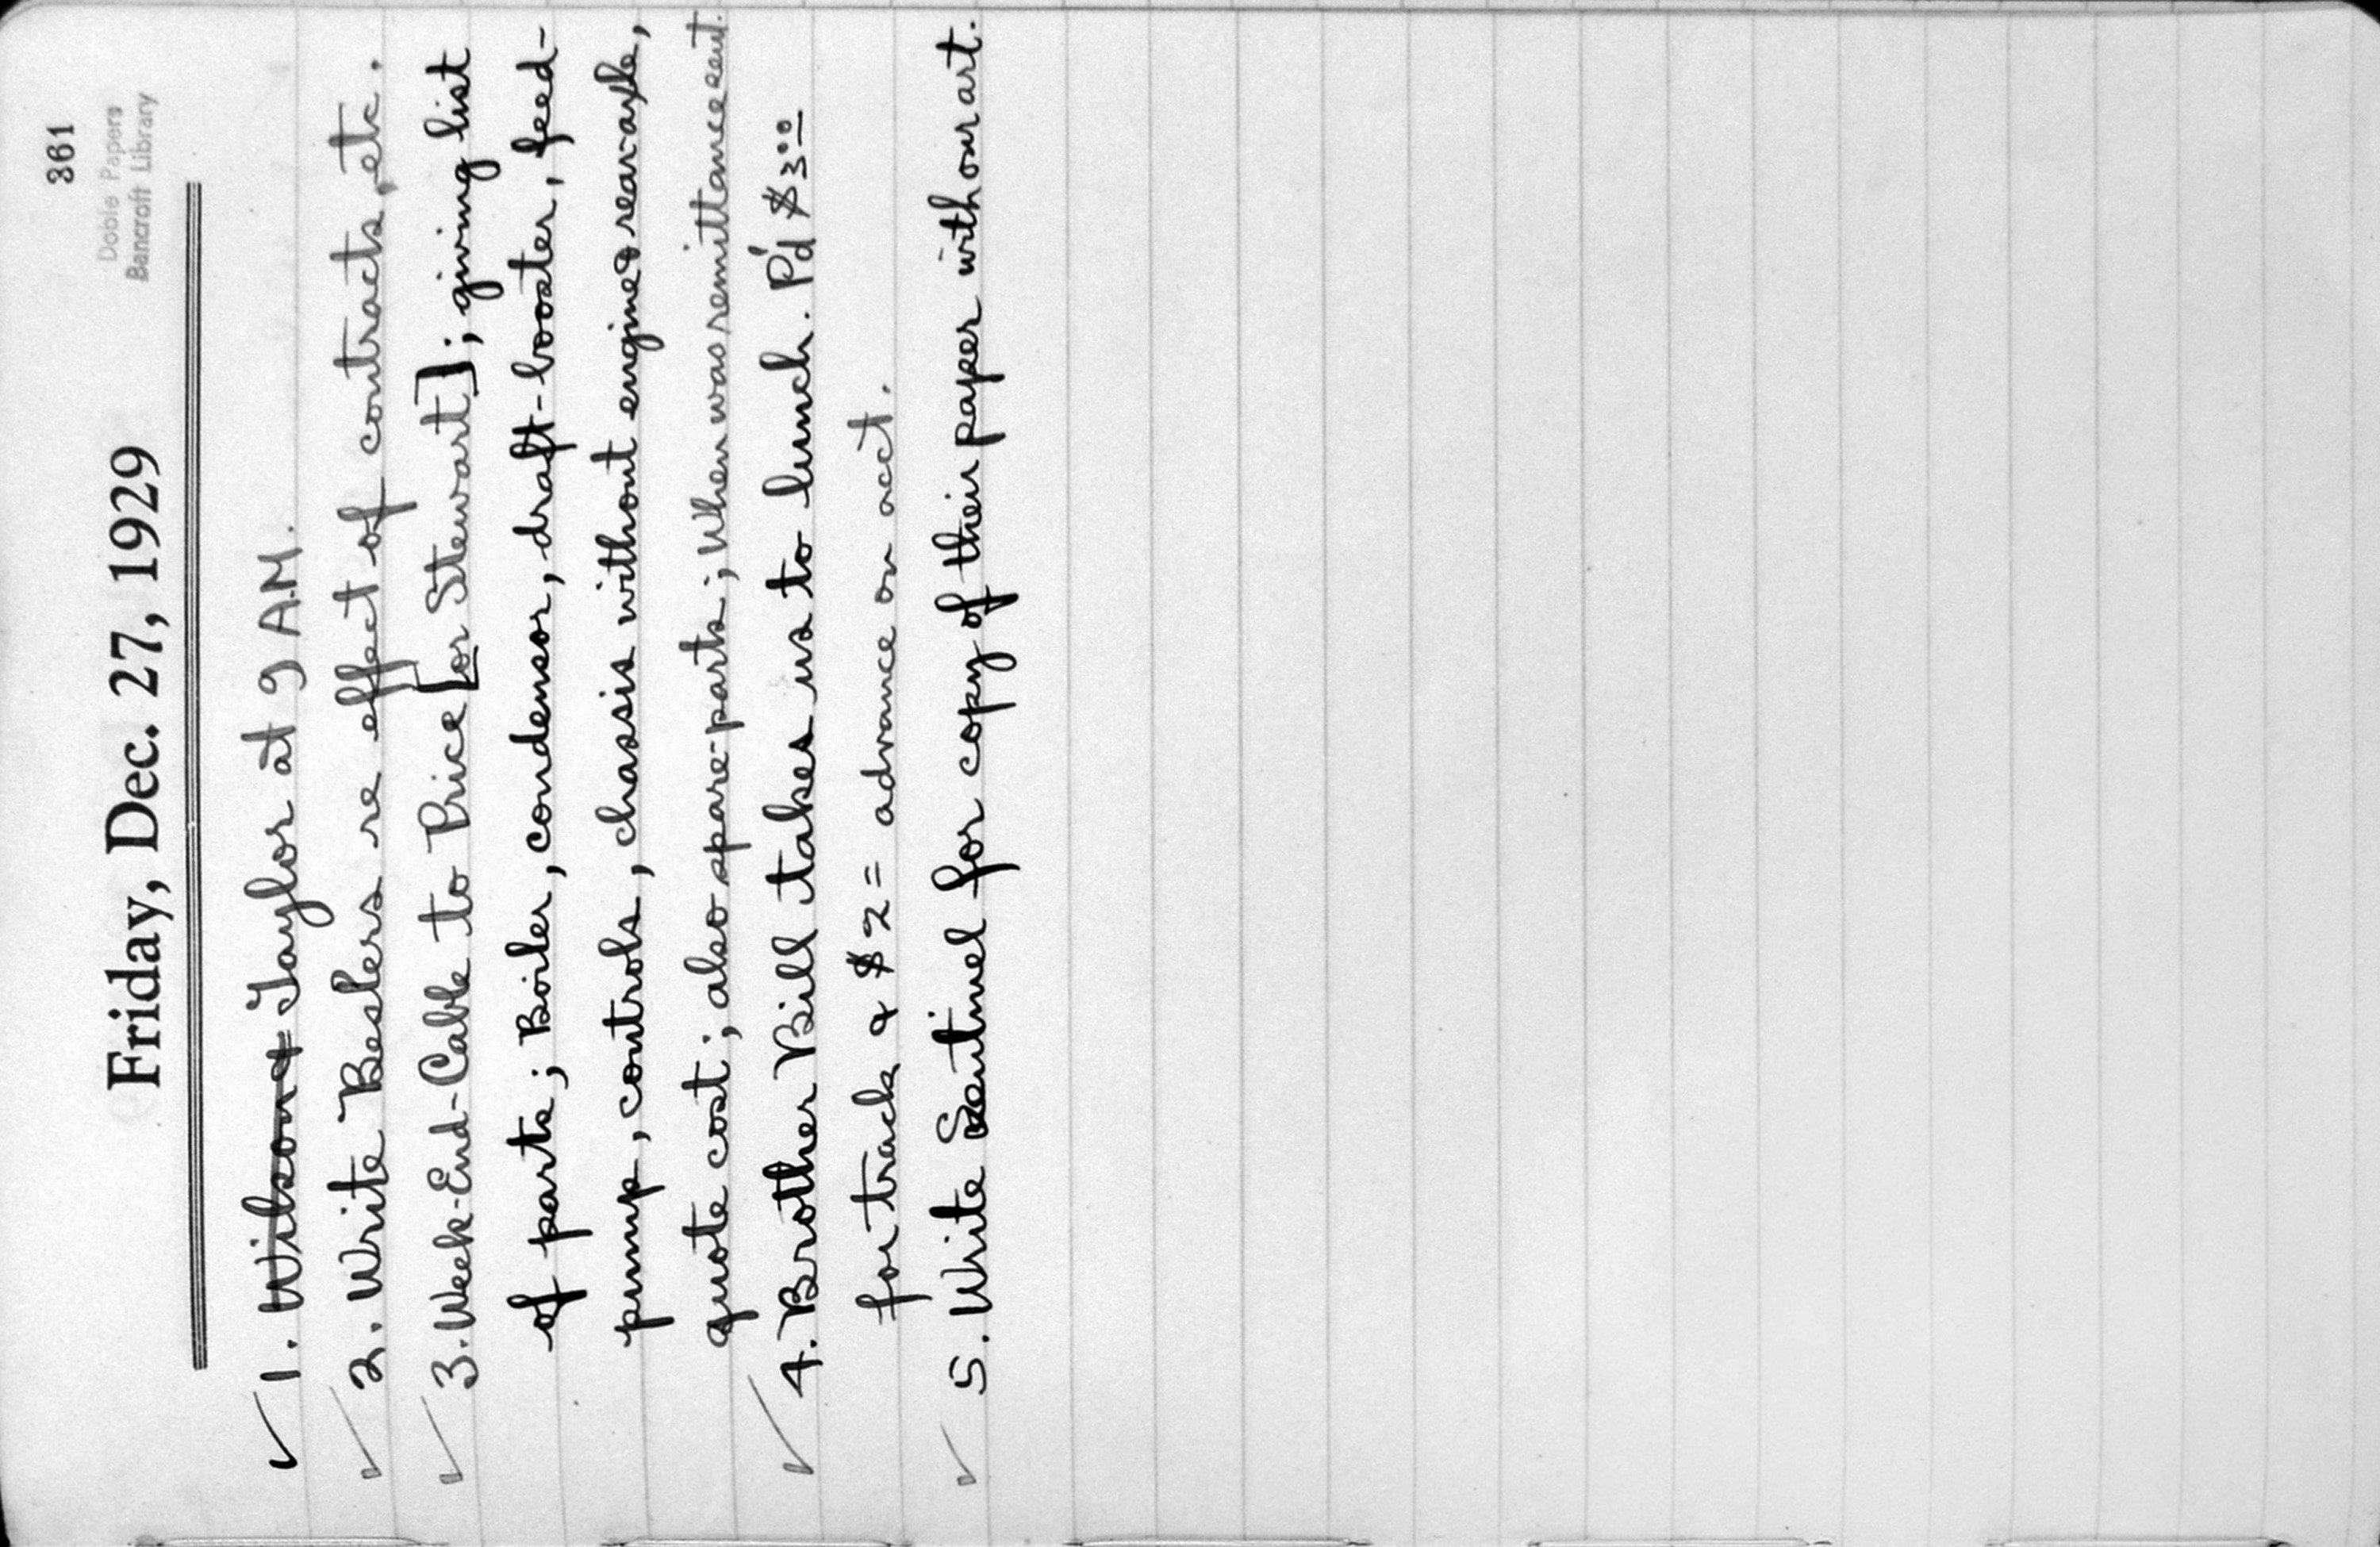 361
Doble Papers
Bancroft Library
Friday, Dec. 27, 1929
✓ 1. Wilson & Taylor at 9 A.M.
✓ 2. Write Beslers re effect of contracts, etc.
✓ 3. Week-End-Cable to Price [or Stewart]; giving list
of parts; Boiler, condensor, draft-booster, feed-
pump, controls, chassis without engine & rear-axle,
quote cost; also spare-parts; When was remittance sent.
✓ 4. Brother Bill takes us to lunch. P'd $3.00
for track & $2= advance on acct.
✓ 5. Write Sentinel for copy of their paper with our art.